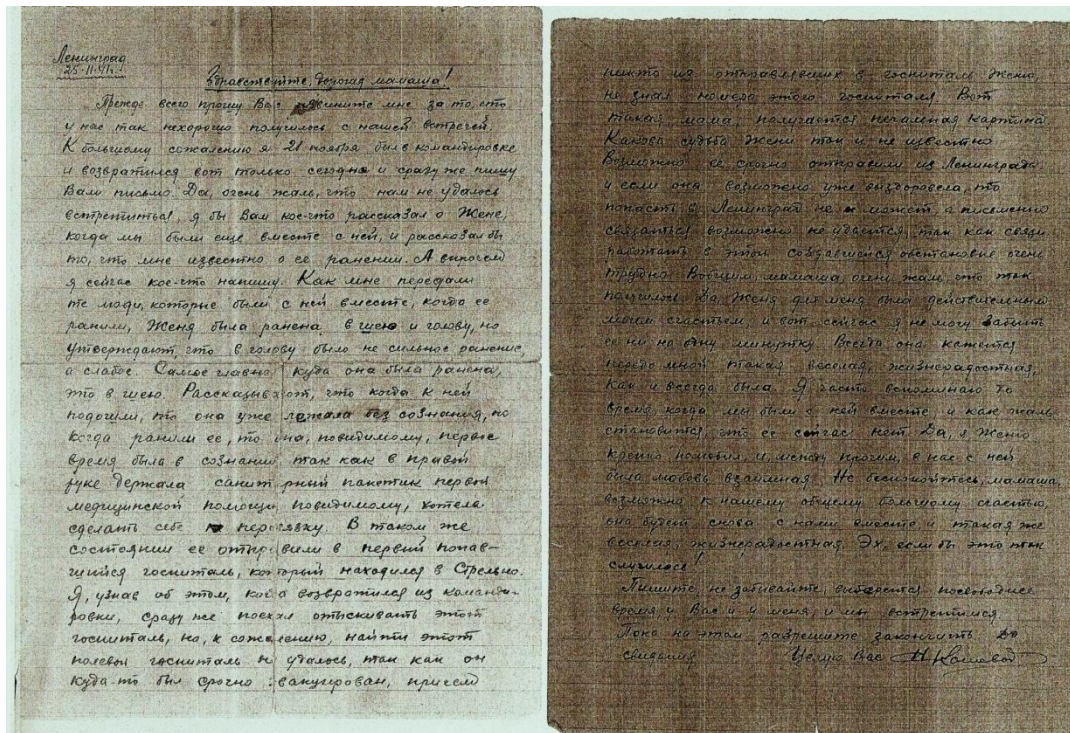 Ленинград
25.11.41г.
Здравствуйте, дорогая мамаша!
Прежде всего прошу Вас извините мне за то, что
у нас так нехорошо получилось с нашей встречей.
К большому сожалению я 21 ноября был в командировке
и возвратился вот только сегодня и сразу же пишу
Вам письмо. Да, очень жаль, что нам не удалось
встретиться, я бы Вам кое-что рассказал о Жене,
когда мы были еще вместе с ней, и рассказал бы
то, что мне известно о ее ранении. А впрочем
я сейчас кое-что напишу. Как мне передали
те люди, которые были с ней вместе, когда ее
ранили, Женя была ранена в шею и голову, но
утверждают, что в голову было не сильное ранение,
а слабое. Самое главно, куда она была ранена,
это в шею. Рассказывают, что когда к ней
подошли, то она уже лежала без сознания, но
когда ранили ее, то она, повидимому, первое
время была в сознании, так как в правой
руке держала санитарный пакетик первой
медицинской помощи, повидимому, хотела
сделать себе перевязку. В таком же
состоянии ее отправили в первый попав-
шийся госпиталь, который находился в Стрельно.
Я, узнав об этом, когда возвратился из команди-
ровки, сразу же поехал отыскивать этот
госпиталь, но, к сожалению, найти этот
полевой госпиталь не удалось, так как он
куда-то был срочно эвакуирован, причем
никто из отправлявших в госпиталь Женю,
не знал номера этого госпиталя. Вот
такая мама, получается печальная картина
Какова судьба Жени так и не известно
Возможно ее срочно отправили из Ленинграда
и если она возможно уже выздоровела, то
попасть в Ленинград не может, а письменно
связаться возможно не удается, так как связи
работать в этой создавшейся обстановке очень
трудно. Вобщем, мамаша, очень жаль, что так
получилось. Да, Женя для меня была действительным
моим счастьем, и вот сейчас я не могу забыть
ее ни на одну минутку. Всегда она кажется
передо мной такая веселая, жизнерадостная,
как и всегда была. Я часто вспоминаю то
время, когда мы были с ней вместе, и как жаль
становится, что ее сейчас нет. Да, я Женю
крепко полюбил, и, между прочим, в нас с ней
была любовь взаимная. Не беспокойтесь, мамаша,
возможно к нашему общему большому счастью,
она будет снова с нами вместе и такая же
веселая, жизнерадостная. Эх, если бы это так
случилось!
Пишите, не забывайте, выберется посвободнее
время и Вас и у меня, и мы встретимся
Пока на этом разрешите закончить До
свидания Целую Вас